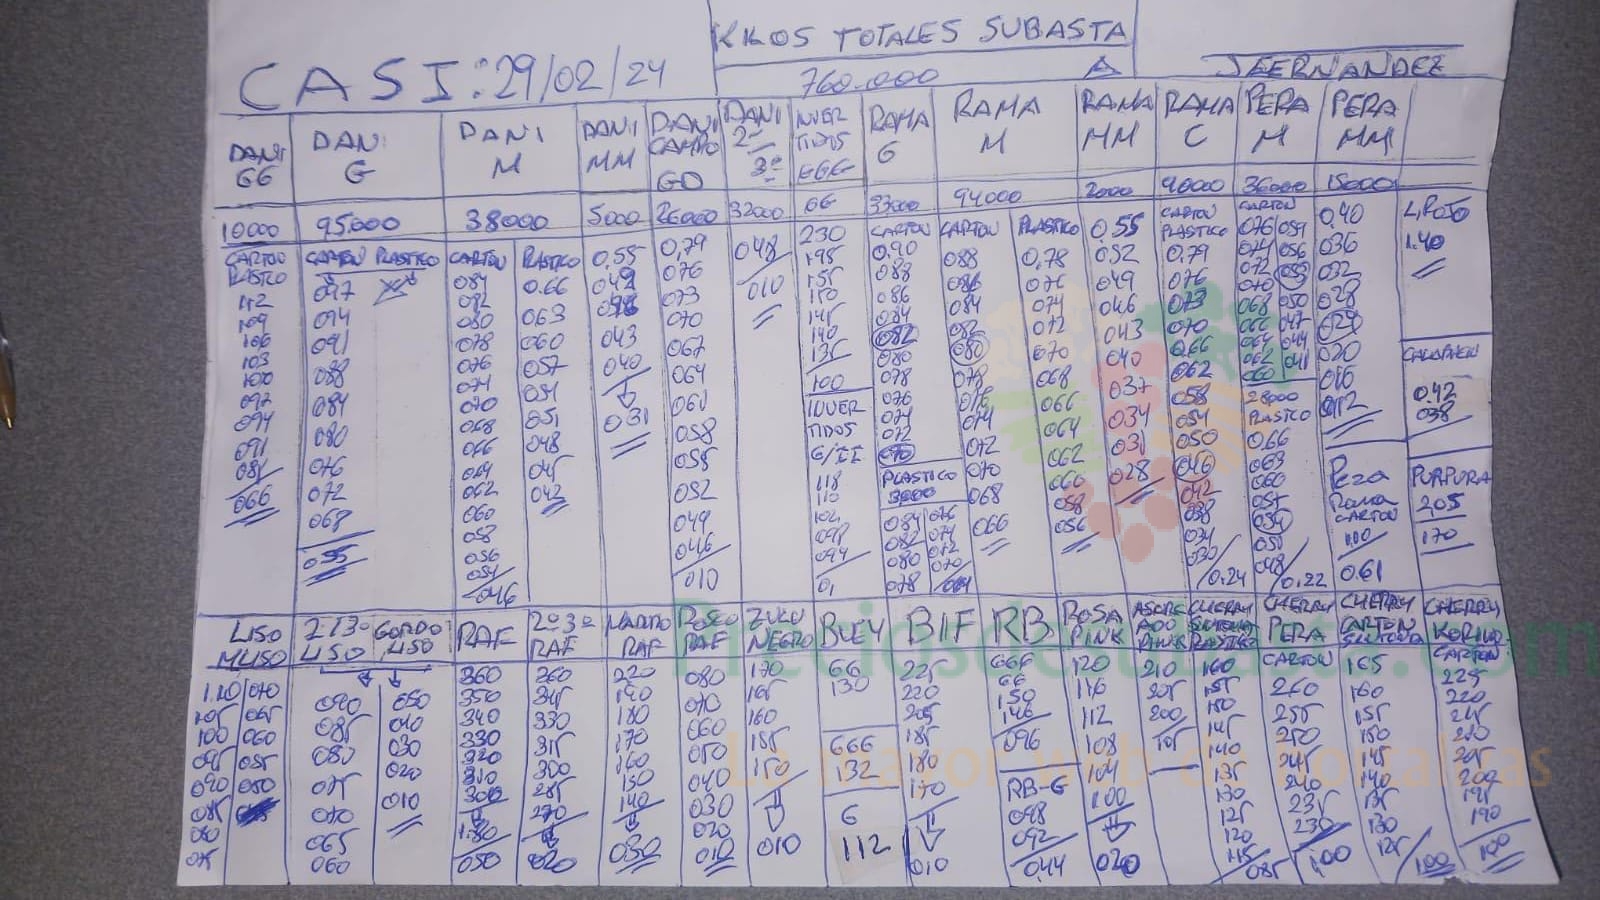 KILOS TOTALES SUBASTA
CASI: 29/02/24
760.000
A
JFERNANDEZ
DANI GG
DANI G
DANI M
DANI MM
DANI CAMPO GD
DANI 2ª 3ª
INVER TIDOS GGG
RAMA G
RAMA M
RAMA MM
RAMA C
PERA M
PERA MM
10000
95.000
38000
5000
26000
32000
GG
33000
94000
2000
90000
36000
15000
CARTON PLASTICO
112
109
106
103
100
097
094
091
081
066
CARTON PLASTICO
097
094
091
088
084
080
076
072
068
055
CARTON
084
082
080
078
076
074
070
068
066
064
062
060
058
056
054
046
PLASTICO
0.66
063
060
057
054
051
048
045
042
0.55
049
046
043
040
031
0,79
076
073
070
067
064
061
058
055
052
049
046
010
048
010
230
195
155
150
145
140
135
100
INVER TIDOS G/II
118
110
102
098
094
0,1
CARTON
0.90
088
086
084
082
080
078
076
074
072
070
PLASTICO
3000
084 076
082 074
080 072
078 070
CARTON
088
086
084
082
080
078
076
074
072
070
068
066
PLASTICO
0,78
076
074
072
070
068
066
064
062
060
058
056
0.55
0.52
049
046
043
040
037
034
031
028
CARTON
PLASTICO
0.79
076
073
070
0.66
062
058
054
050
046
042
038
034
030
0.24
CARTON
076 059
074 056
072 053
070 050
068 047
066 044
064 041
062
060
28000
PLASTICO
0.66
063
060
057
054
051
048
0.22
0.40
036
032
028
024
020
016
012
Pera Rama CARTON
1.00
0.61
L, ROJO
1.40
0.42
038
PURPURA
205
170
LISO MLISO
1.10 070
105 065
100 060
095 055
090 050
085
080
075
2ª 3ª LISO
090
085
080
075
070
065
060
GORDO LISO
050
040
030
020
010
RAF
360
350
340
330
320
310
300
180
050
2ª 3ª RAF
360
345
330
315
300
285
270
020
MARMO RAF
220
190
180
170
160
150
140
030
ROSEO RAF
080
070
060
050
040
030
020
010
ZULU NEGRO
170
165
160
155
150
010
BUEY
GG
130
GGG
132
G
112
BIF
225
220
205
185
180
170
010
RB
GGG
GG
150
146
096
RB-G
098
092
044
ROSA PINK
120
116
112
108
104
100
020
ASURCADO PINK
210
205
200
105
CHERRY SINTONIA PLASTICO
160
155
150
145
140
135
130
125
120
115
085
CHERRY PERA
CARTON
260
255
250
245
240
235
230
100
CHERRY CARTON SINTONIA
165
160
155
150
145
140
135
130
125
100
CHERRY KORINO
CARTON
225
220
215
210
205
200
195
190
100
Preciosdesubasta.com
La mayor web de hortalizas